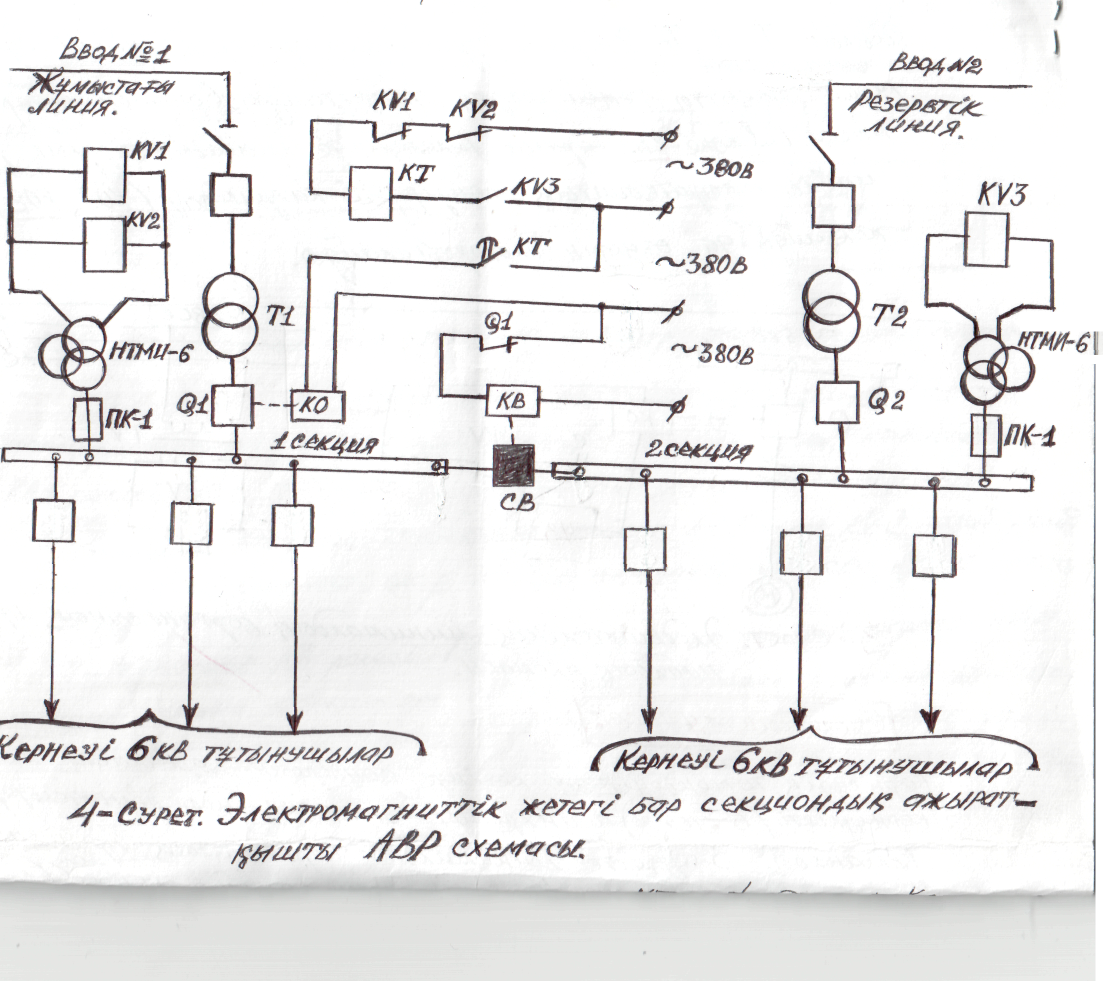 Ввод №1
Жұмыстағы
линия.
Ввод N2
Резервтік
линия.
KV1
KV2
KV1
KV2
~380В
КТ
KV3
KV3
КТ
~380В
Т1
Т2
НТМИ-6
НТМИ-6
Q1
~380В
Q1
КО
КВ
Q2
ПК-1
ПК-1
1 секция
2 секция
СВ
Кернеуі 6кв тұтынушылар
Кернеуі 6кв тұтынушылар
4-Сурет. Электромагниттік жетегі бар секциондық ажырат-
қышты АВР схемасы.